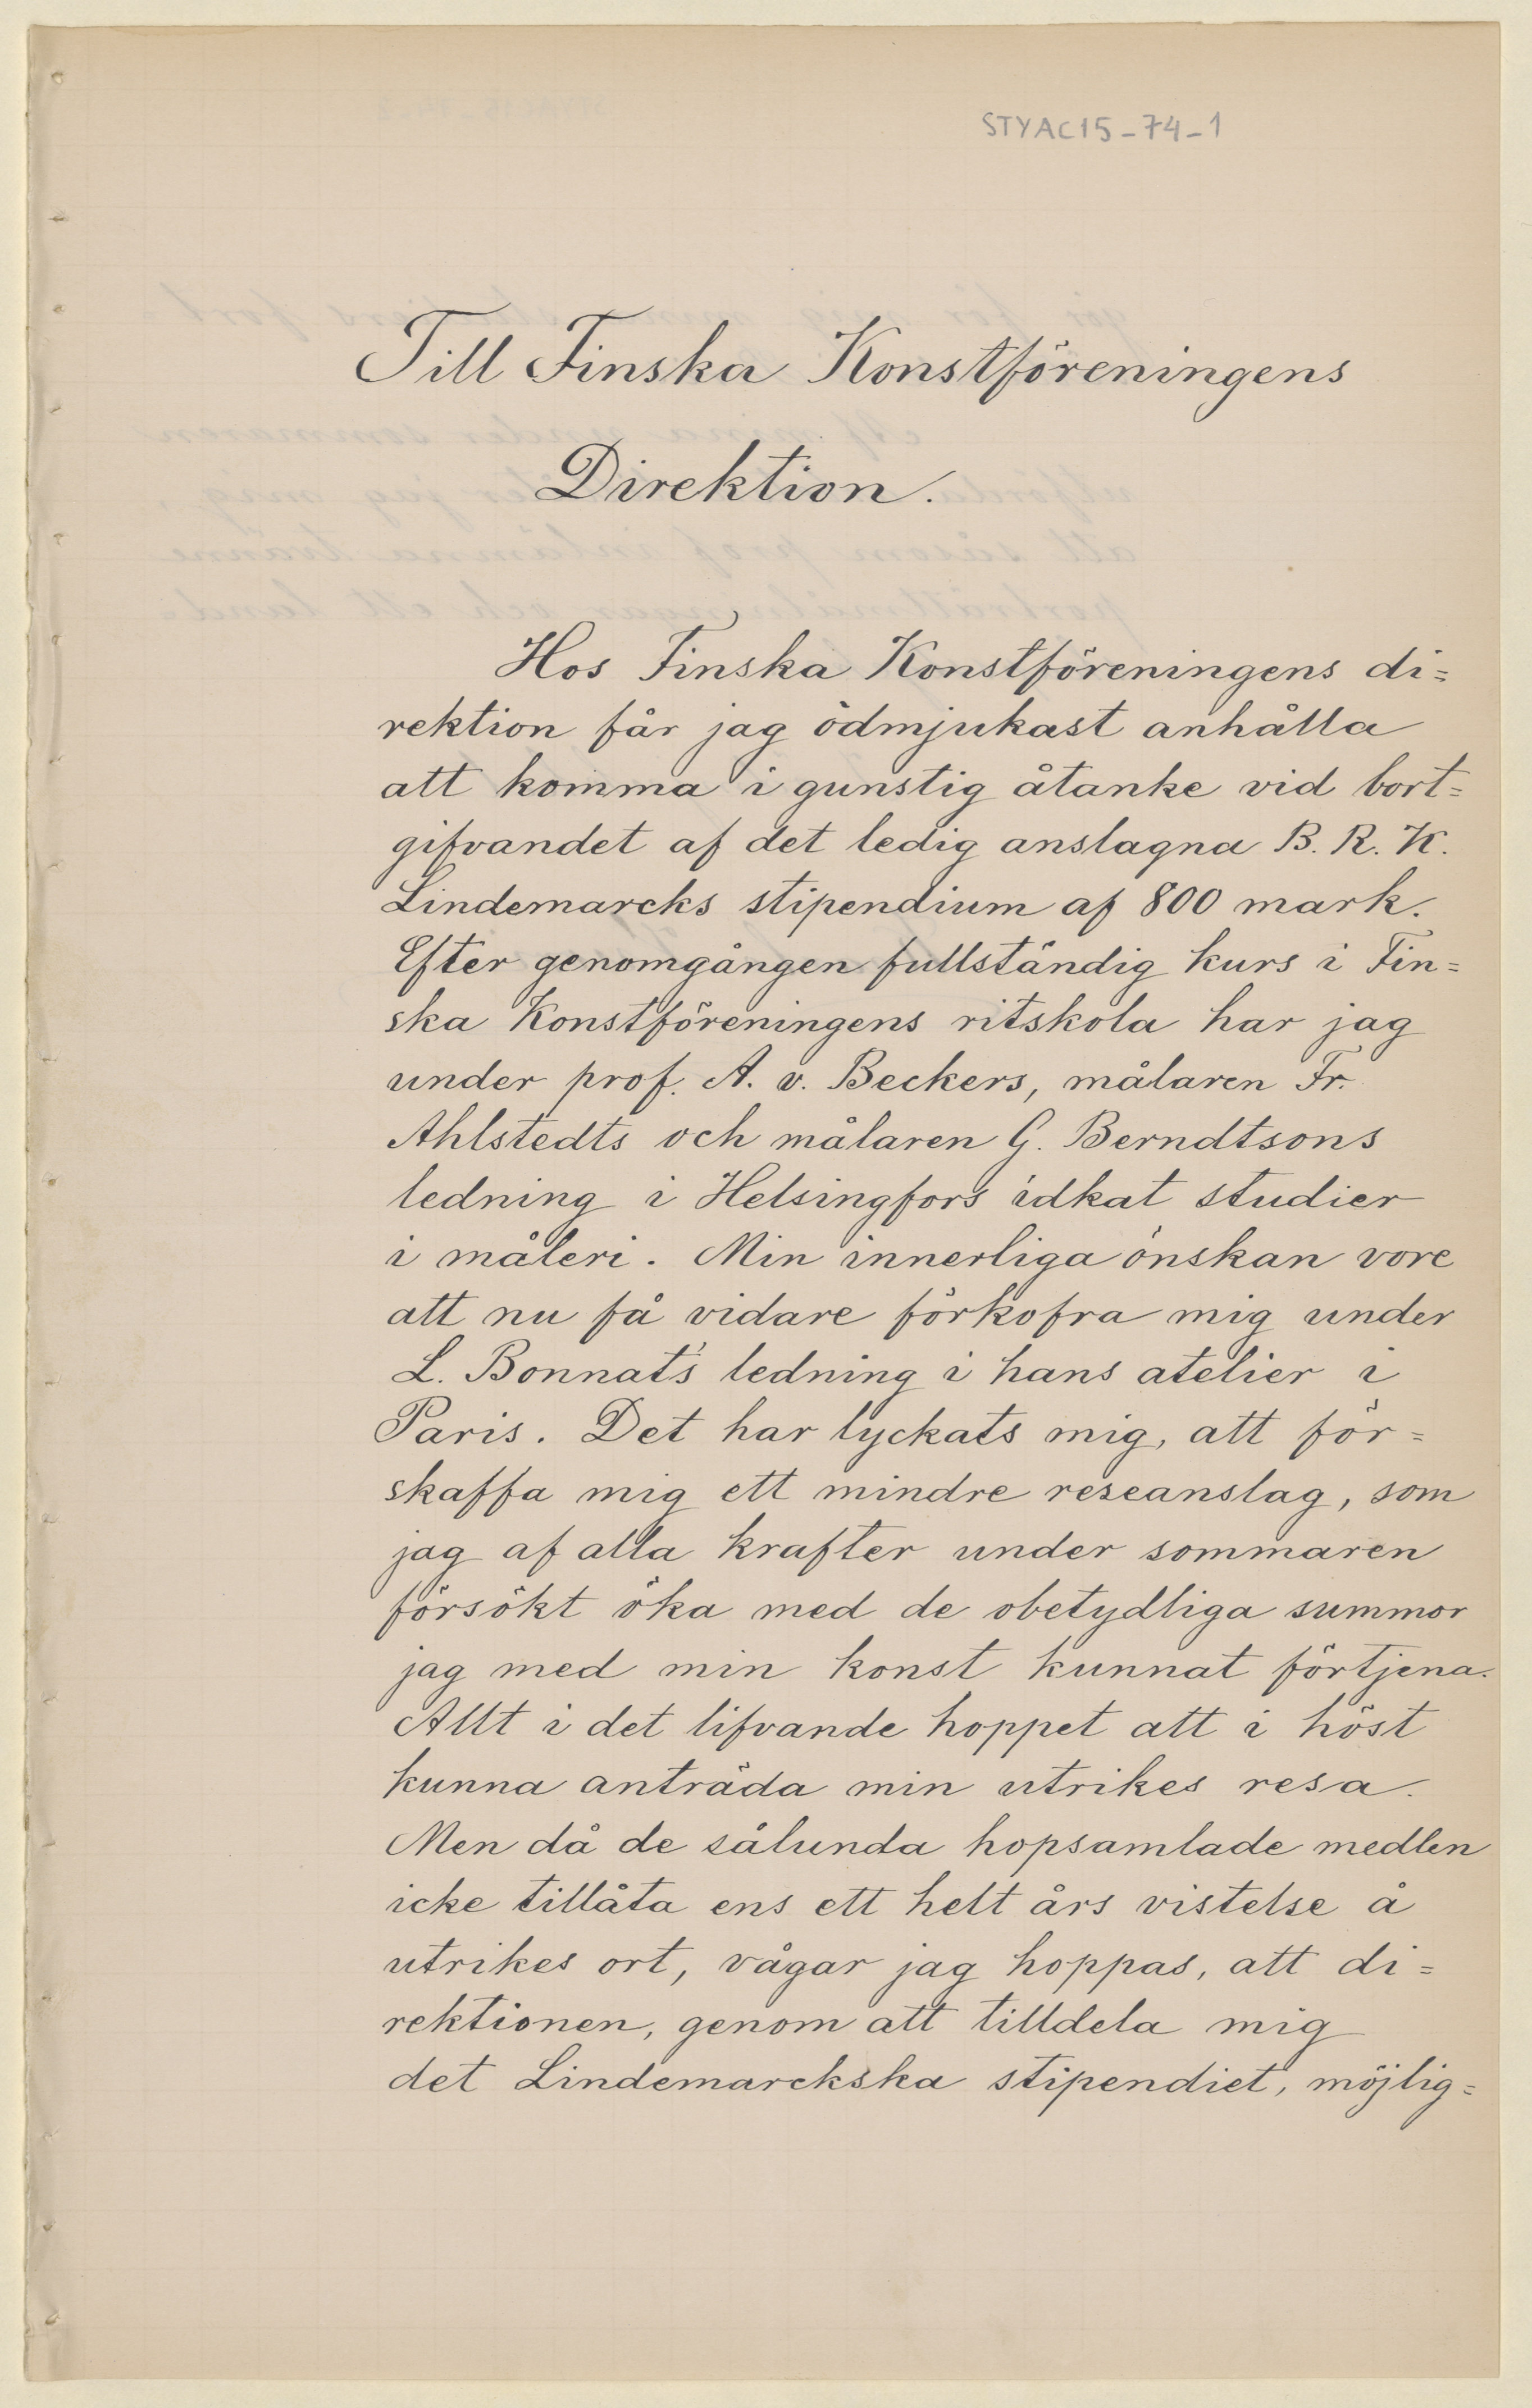 STYAC15-74-1
Till Finska Konstföreningens
Direktion.
Hos Finska Konstföreningens di=
rektion får jag ödmjukast anhålla
att komma i gunstig åtanke vid bort=
gifvandet af det ledig anslagna B. R. K.
Lindemarcks stipendium af 800 mark.
Efter genomgången fullständig kurs i Fin=
ska Konstföreningens ritskola har jag
under prof. A. v. Beckers, målaren Fr.
Ahlstedts och målaren G. Berndtsons
ledning i Helsingfors idkat studier
i måleri. Min innerliga önskan vore
att nu få vidare förkofra mig under
L. Bonnat's ledning i hans atelier i
Paris. Det har lyckats mig, att för=
skaffa mig ett mindre reseanslag, som
jag af alla krafter under sommaren
försökt öka med de obetydliga summor
jag med min konst kunnat förtjena.
Allt i det lifvande hoppet att i höst
kunna anträda min utrikes resa.
Men då de sålunda hopsamlade medlen
icke tillåta ens ett helt års vistelse å
utrikes ort, vågar jag hoppas, att di=
rektionen, genom att tilldela mig
det Lindemarckska stipendiet, möjlig=